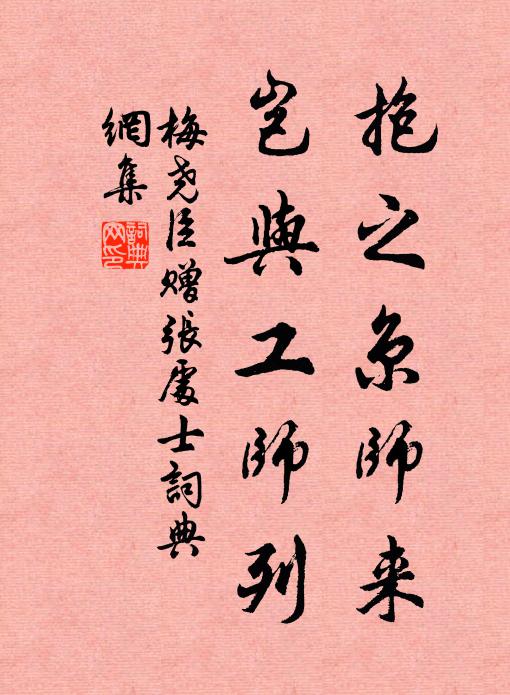 抱之京師来
岂與工師列
梅尧臣贈張處士詞典
網集
詞典
网印